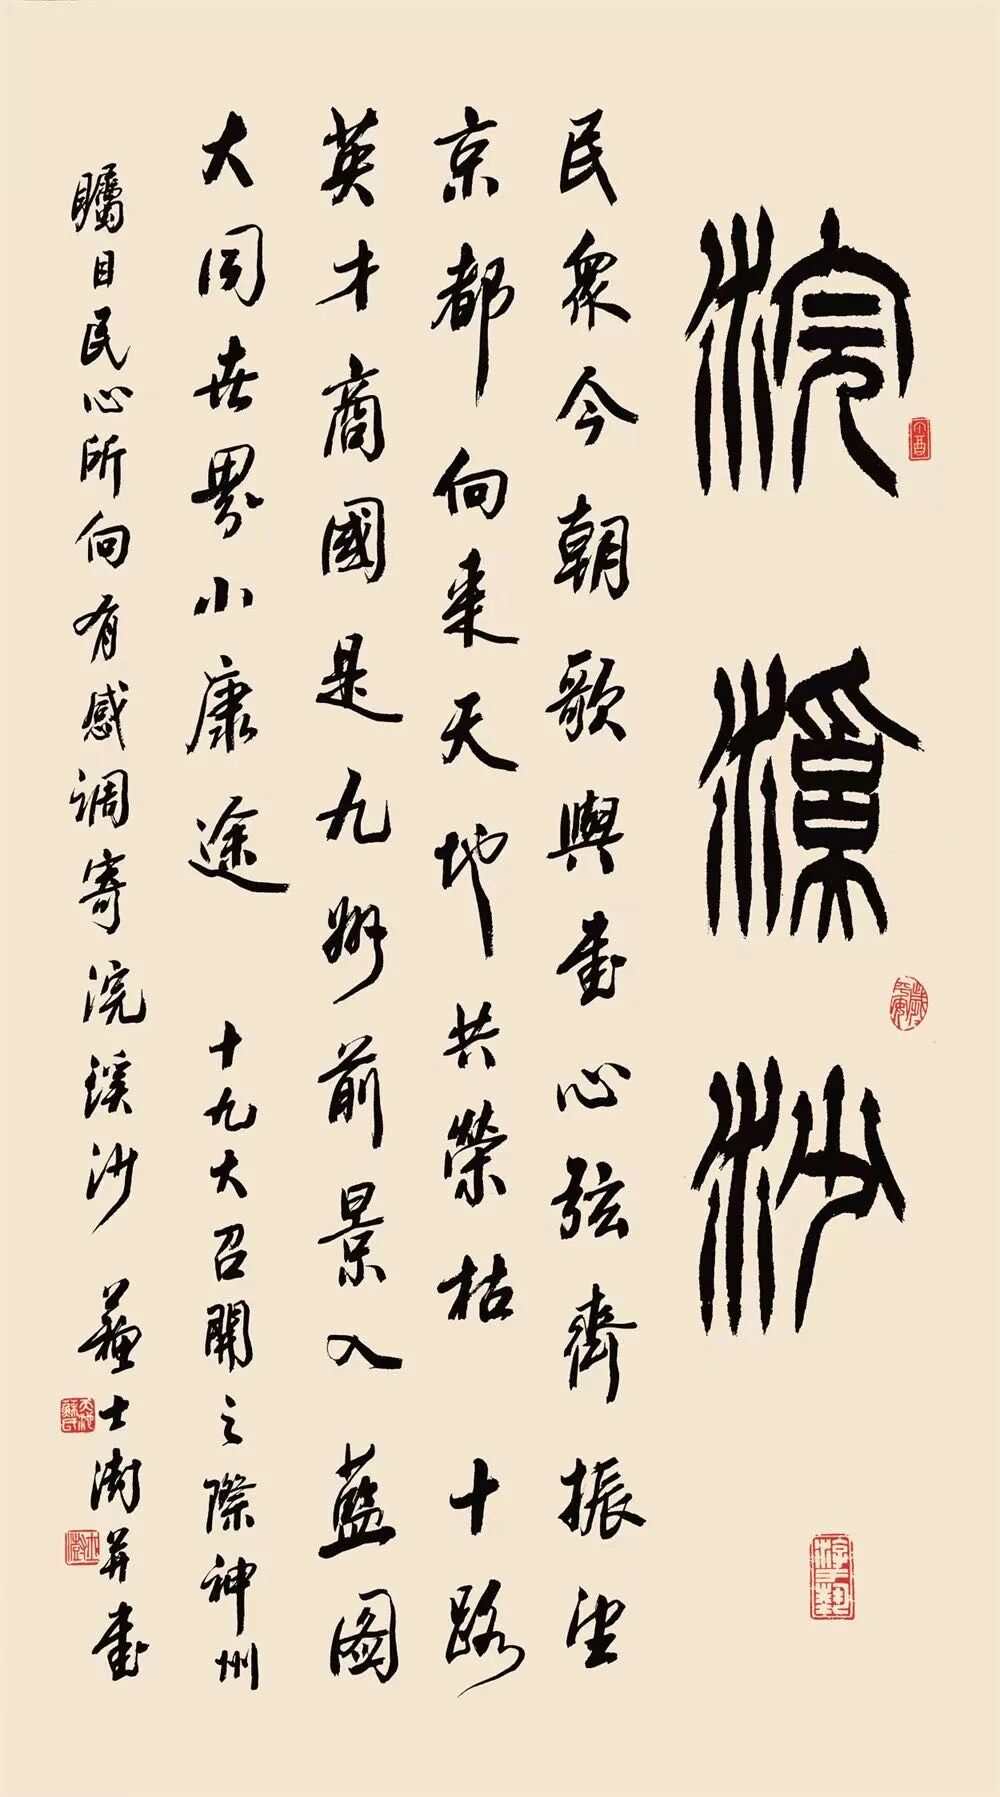 浣溪沙
民衆今朝歌與書心弦齊振望
京都向來天地共榮枯 十路
英才商國是九州前景入藍圖
大同世界小康途 十九大召開之際神州
矚目民心所向有感調寄浣溪沙 蘇士澍并書